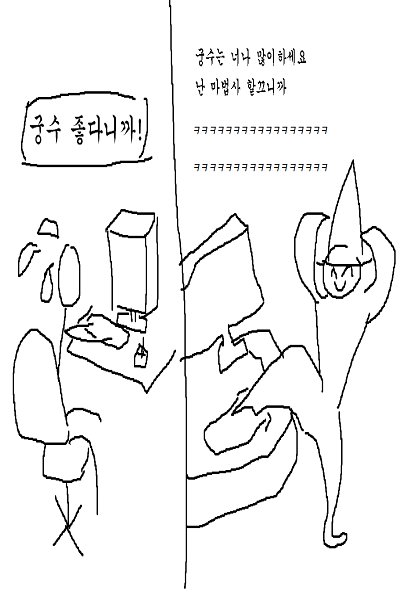 궁수 좋다니까!
궁수는 너나 많이하세요
난 마법사 할끄니까
ㅋㅋㅋㅋㅋㅋㅋㅋㅋㅋㅋㅋㅋㅋㅋㅋㅋ
ㅋㅋㅋㅋㅋㅋㅋㅋㅋㅋㅋㅋㅋㅋㅋㅋㅋ